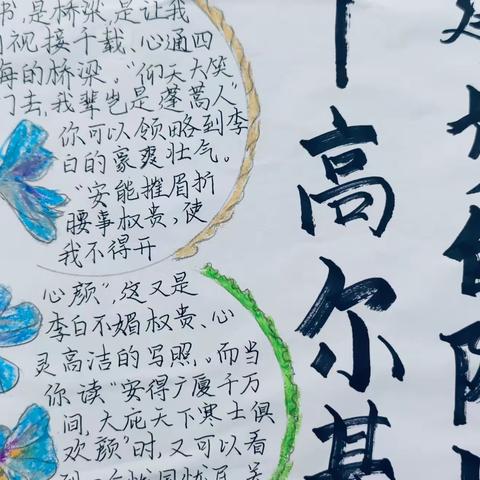 书,是桥梁,是让我
视接千载、心通四
海的桥梁。“仰天大笑
门去,我辈岂是蓬蒿人”
你可以领略到李
白的豪爽壮气。
“安能摧眉折
腰事权贵,使
我不得开
心颜”,这又是
李白不媚权贵、心
灵高洁的写照,。而当
你读“安得广厦千万
间,大庇天下寒士俱
欢颜”时,又可以看
高尔基